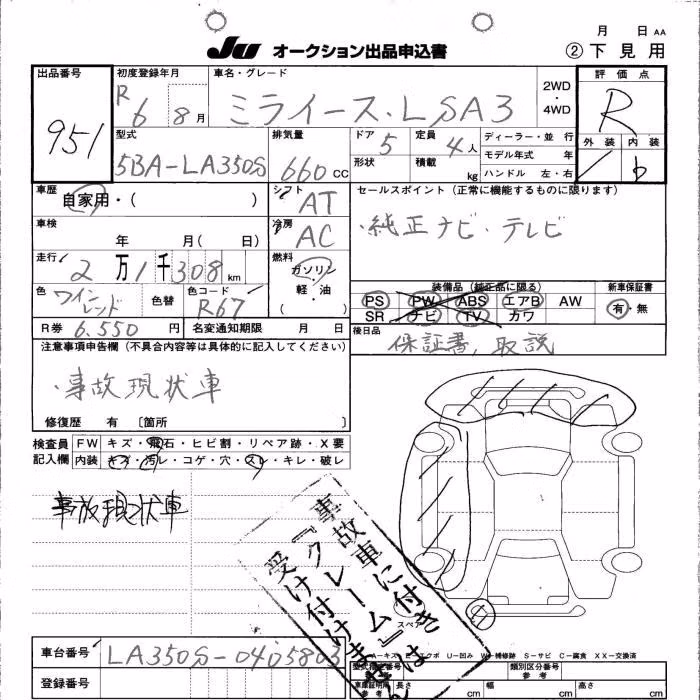 月 日 AA
JU オークション出品申込書 ②下見用
出品番号 951
初度登録年月 R6 8月
車名・グレード ミライース・LSA3
2WD・4WD
評価点 R
外装 内装 b
型式 5BA-LA350S
排気量 660CC
ドア 5 定員 4人
形状 積載 kg
ディーラー・並行
モデル年式 年
ハンドル 左・右
車歴 自家用・( )
シフト AT
セールスポイント(正常に機能するものに限ります)
・純正ナビ・テレビ
車検 年 月( 日)
冷房 AC
走行 2万1千308km
燃料 ガソリン・軽・油 ( )
装備品(純正品に限る)
PS PW ABS エアB AW
SR ナビ TV カワ
新車保証書 有・無
色 ワインレッド 色替
色コード R67
R券 6.550円 名変通知期限 月 日
後日品 保証書,取説
注意事項申告欄(不具合内容等は具体的に記入してください)
・事故現状車
修復歴 有 〔箇所 〕
検査員記入欄
FW キズ・飛石・ヒビ割・リペア跡・X要
内装 キズ・汚レ・コゲ・穴・スレ・キレ・破レ
事故現状車
事故車に付き
『クレーム』は
受け付けません
スペア
車台番号 LA350S-0405803
登録番号
A…キズ E…エクボ U…凹み W…補修跡 S…サビ C…腐食 XX…交換済
類別区分番号
参考
長さ cm 幅 cm 高さ cm